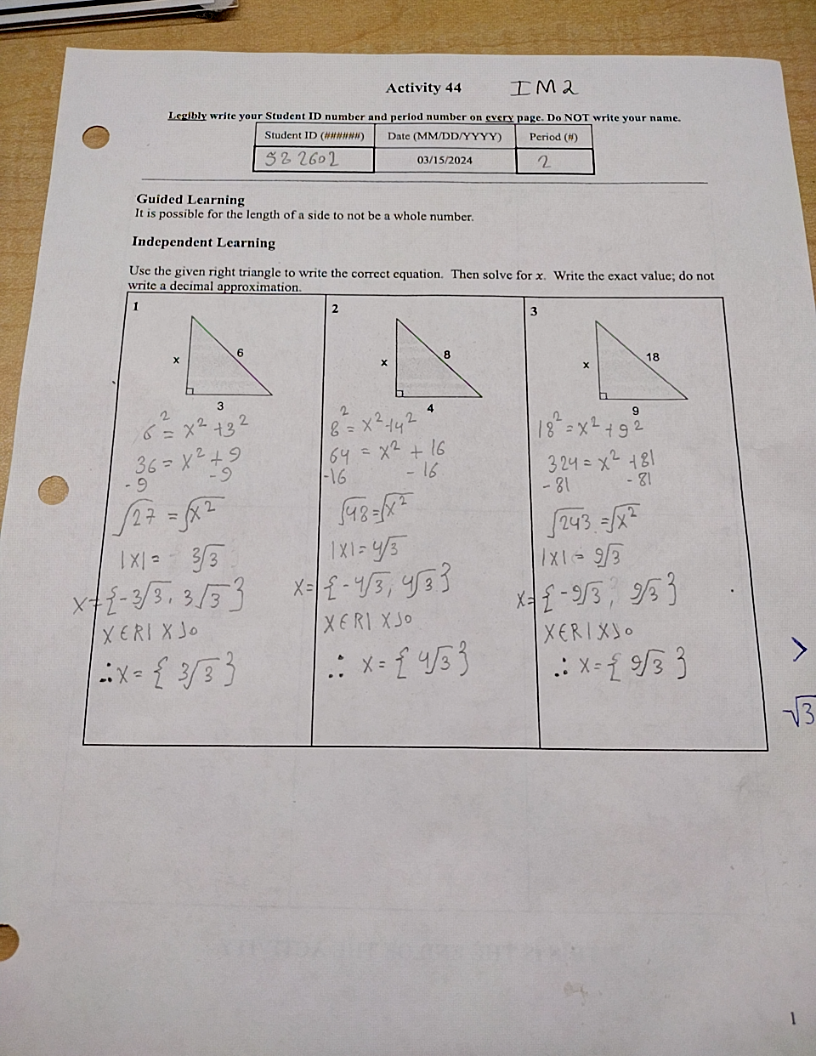 Activity 44 IM2
Legibly write your Student ID number and period number on every page. Do NOT write your name.
Student ID (######) Date (MM/DD/YYYY) Period (#)
582602 03/15/2024 2
Guided Learning
It is possible for the length of a side to not be a whole number.
Independent Learning
Use the given right triangle to write the correct equation. Then solve for x. Write the exact value; do not
write a decimal approximation.
1
x
6
3
6² = x² + 3²
36 = x² + 9
-9 -9
√27 = √x²
|x| = 3√3
x = {-3√3, 3√3}
x∈R| x>0
∴ x = {3√3}
2
x
8
4
8² = x² + 4²
64 = x² + 16
-16 -16
√48 = √x²
|x| = 4√3
x = {-4√3, 4√3}
x∈R| x>0
∴ x = {4√3}
3
x
18
9
18² = x² + 9²
324 = x² + 81
-81 -81
√243 = √x²
|x| = 9√3
x = {-9√3, 9√3}
x∈R| x>0
∴ x = {9√3}
>
√3
1